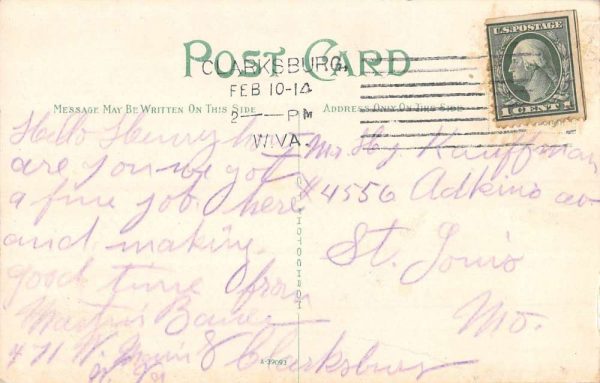 POST CARD
CLARKSBURG,
FEB 10-14
2 — PM
W.VA.
U.S. POSTAGE
1 CENT 1
MESSAGE MAY BE WRITTEN ON THIS SIDE
ADDRESS ONLY ON THIS SIDE
Hello Henry how
are you we got
a fine job here
and making
good time from
Bauer
471 W. Main Clarksburg
W. Va
Mr Hy Kauffman
#4556 Adkins av
St. Louis
Mo.
A-39093